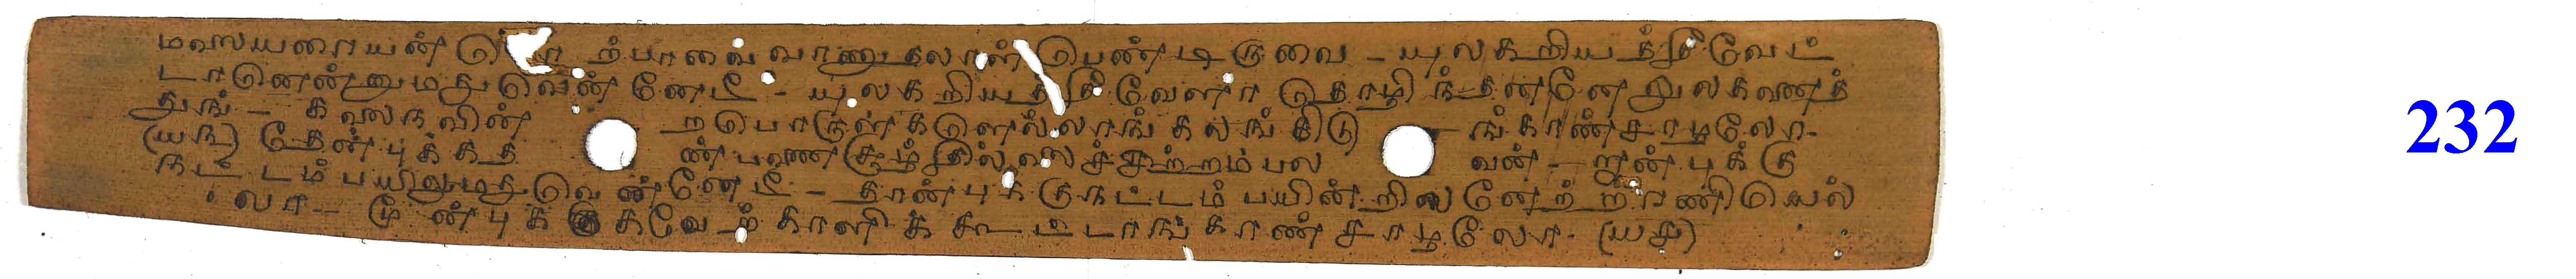 மலையரையன் பொ ற்பாவை வாணுதலாள் பெண்டிருவை - யுலகறியத்தீவேட்
டானென்னுமதுவென்னேடீ - யுலகறியத்தீ வேளா தொழிந்தனனேலுலகனைத்
துங் - கலைநவின் றபொருள்களெல்லாங் கலங்கிடு ங்காண்சாழலோ -
(யங) தேன்புக்கத ண்பணைசூழ்தில்லைச்சிற்றம்பல வன் - றான்புக்கு
நட்டம்பயிலுமதுவென்னேடீ - தான்புக்குநட்டம் பயின்றிலனேற்றரணியெல்
லா - மூன்புக்கவேற்காளிக்கூட்டாங்காண்சாழலோ - (யச)
232